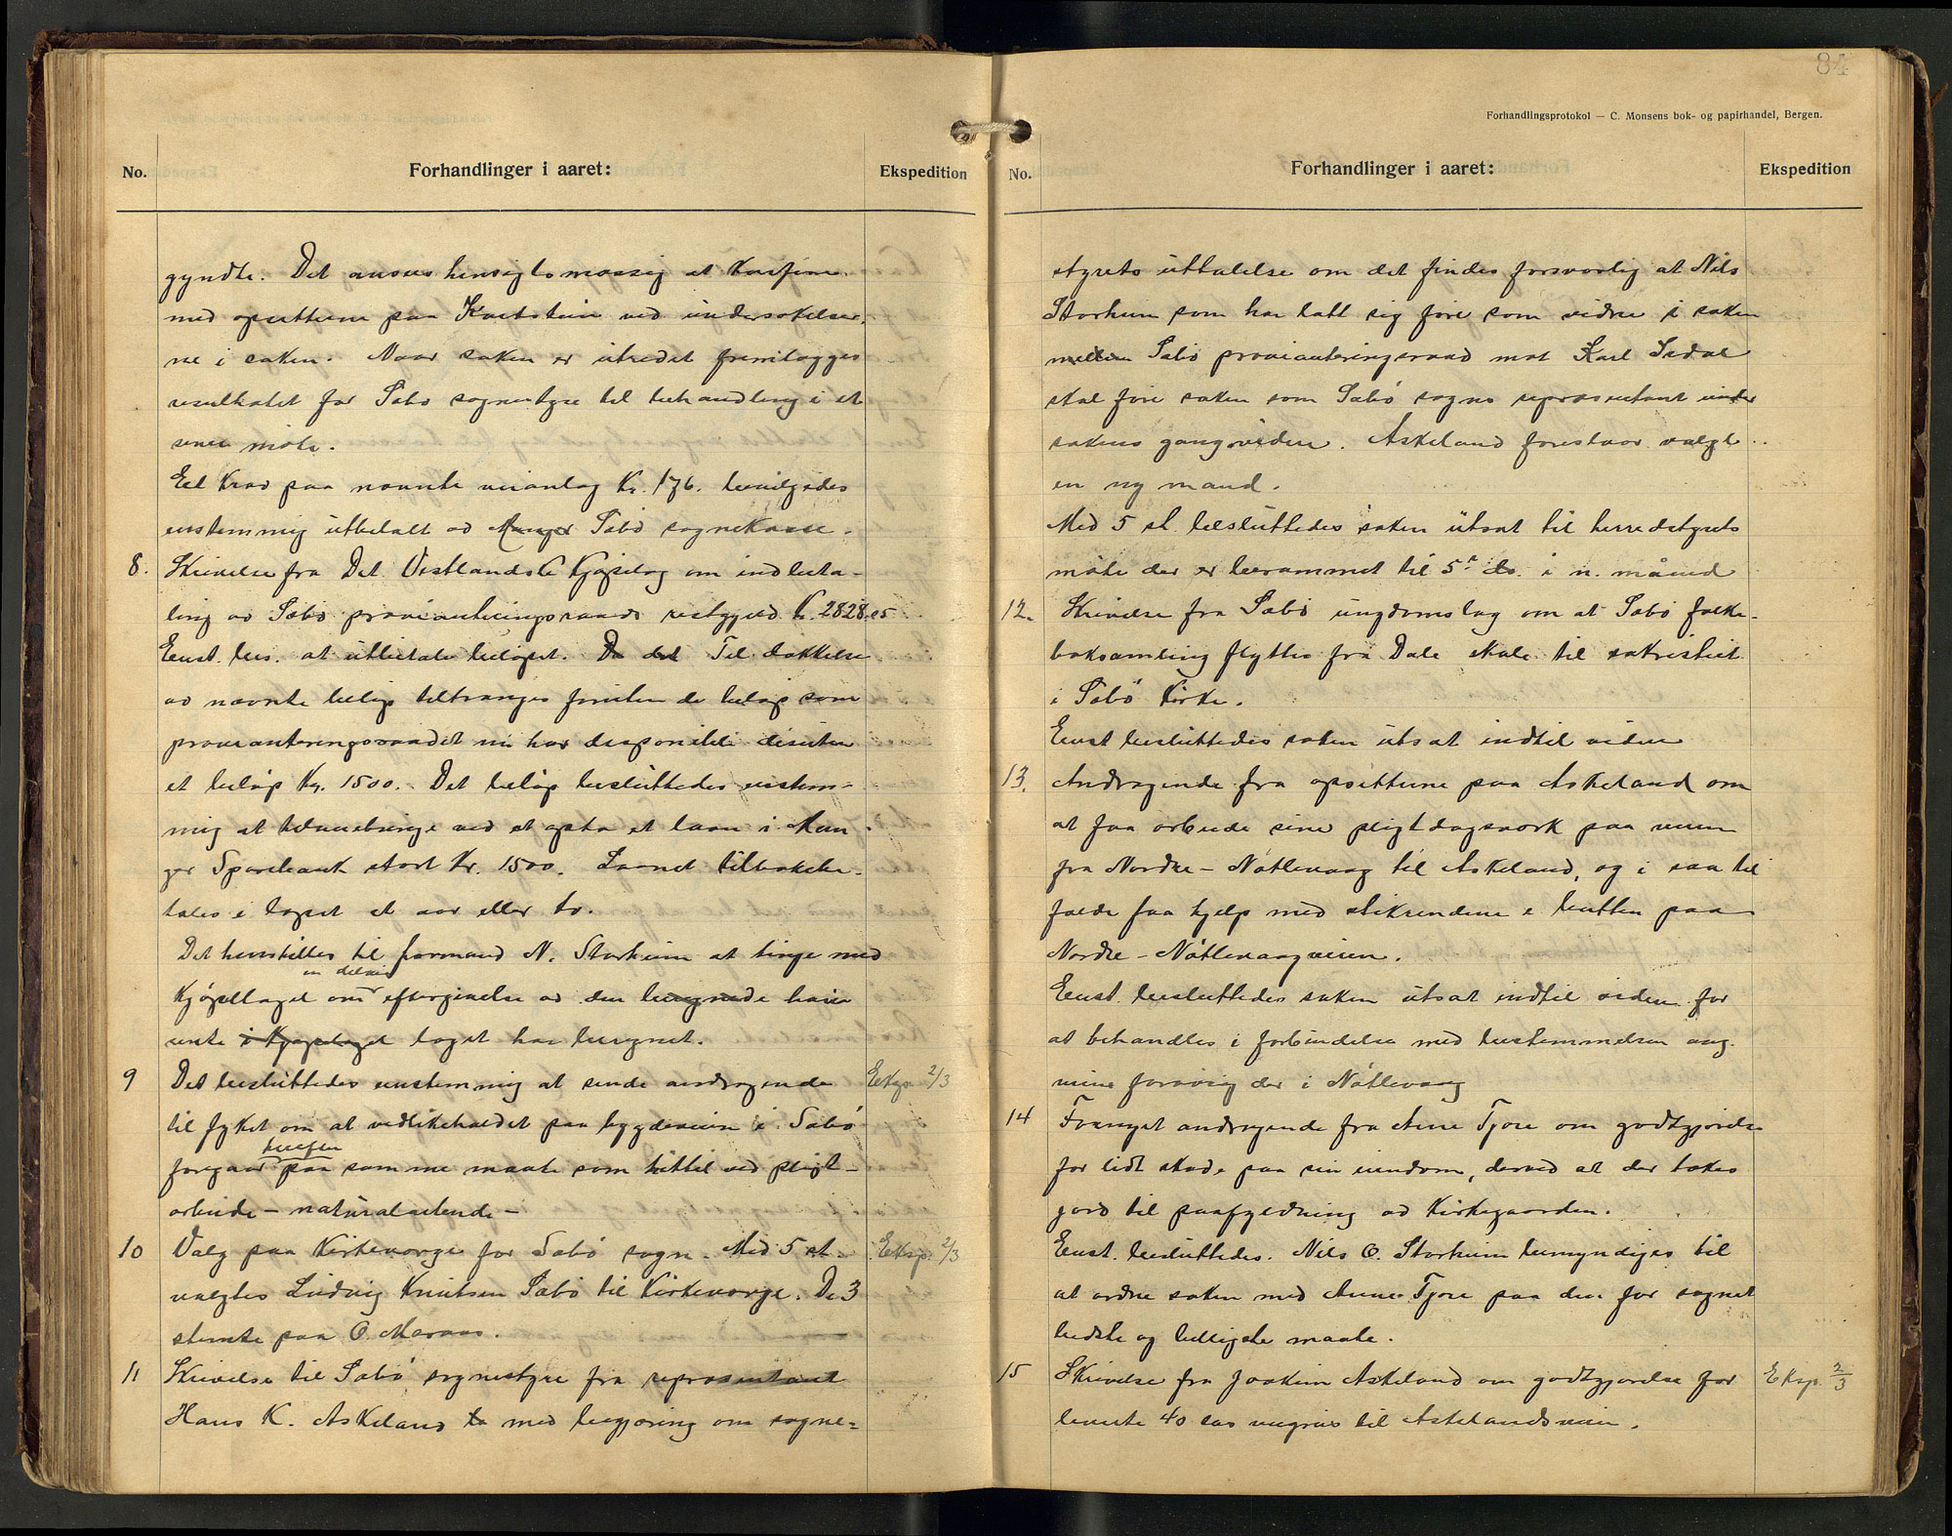 No.
Forhandlinger i aaret:
Ekspedition
gyndte. Det ansees hensigtsmæssig at
med opsitterne paa ved undersøkelser,
ne i saken. Naar saken er utredet fremlægges
resultatet for Sæbø sognestyre til behandling i et
senere møte.
Eet krav paa nævnte veianlæg kr. 176. bevilgedes
enstemmig utbetalt av Sæbø sognekasse.
8. Skrivelse fra Det Vestlandske Kjøpelag om indbeta-
ling av Sæbø provianteringsraads restgjæld kr. 2828.25
Enst. bes. at utbetale beløpet. Da det Til dækkelse
av nævnte beløp tiltrænges foruten de beløp som
provianteringsraadet nu har disponible desuten
et beløp kr. 1500. Det beløp besluttedes enstem-
mig at tilveiebringe ved at opta et laan i Man-
ger Sparebank stort kr. 1500. Laanet tilbakebe-
tales i løpet et aar eller to.
Det henstilles til formand N. Storheim at tinge med
en delvis
Kjøpelaget om eftergivelse av den beregnede høie
rente i Kjøpelaget laget har beregnet.
9 Det besluttedes enstemmig at sende andragende Eksp. 2/3
til fylket om at vedlikeholdet paa bygdeveien i Sæbø
herefter
foregaar paa samme maate som hittil ved pligt-
arbeide - naturalarbeide -
10 Valg paa Kirkeverge for Sæbø sogn. Med 5 st. Eksp. 2/3
valgtes Ludvig Knutsen Sæbø til Kirkeverge. De 3
stemte paa O. Maraas.
11 Skrivelse til Sæbø sognestyre fra repræsentant
Hans K. Askeland to med begjæring om sogne=
84
Forhandlingsprotokol — C. Monsens bok- og papirhandel, Bergen.
No.
Forhandlinger i aaret:
Ekspedition
styrets uttalelse om det findes forsvarlig at Nils
Storheim som har latt sig føre som vidne i saken
mellem Sæbø provianteringsraad mot Karl
skal føre saken som Sæbø sogns repræsentant under
sakens gang videre. Askeland foreslaar valgt
en ny mand.
Med 5 st. besluttedes saken utsat til herredstyrets
møte der er berammet til 5te ds. i n. måned
12. Skrivelse fra Sæbø ungdomslag om at Sæbø folke-
boksamling flyttes fra Dale skule til sakristiet
i Sæbø Kirke.
Enst besluttedes saken utsat indtil videre
13. Andragende fra opsitterne paa Askeland om
at faa arbeide sine pligtdagsverk paa veien
fra Nordre-Nøtlevaag til Askeland, og i saa til
fælde faa hjelp med stikrendene i bakken paa
Nordre-Nøtlevaagveien.
Enst. besluttedes saken utsat indtil videre for
at behandles i forbindelse med bestemmelsen ang.
veiene forøvrig der i Nøtlevaag
14 Fornyet andragende fra Anne Tjore om godtgjørelse
for lidt skade paa sin eiendom, derved at der tokes
jord til paafyldning av Kirkegaarden.
Enst. besluttedes. Nils O. Storheim bemyndiges til
at ordne saken med Anne Tjore paa den for sognet
bedste og billigste maate.
15 Skrivelse fra Joakim Askeland om godtgjørelse for Eksp. 2/3
leverte 40 las veigrus til Askelandsveien.